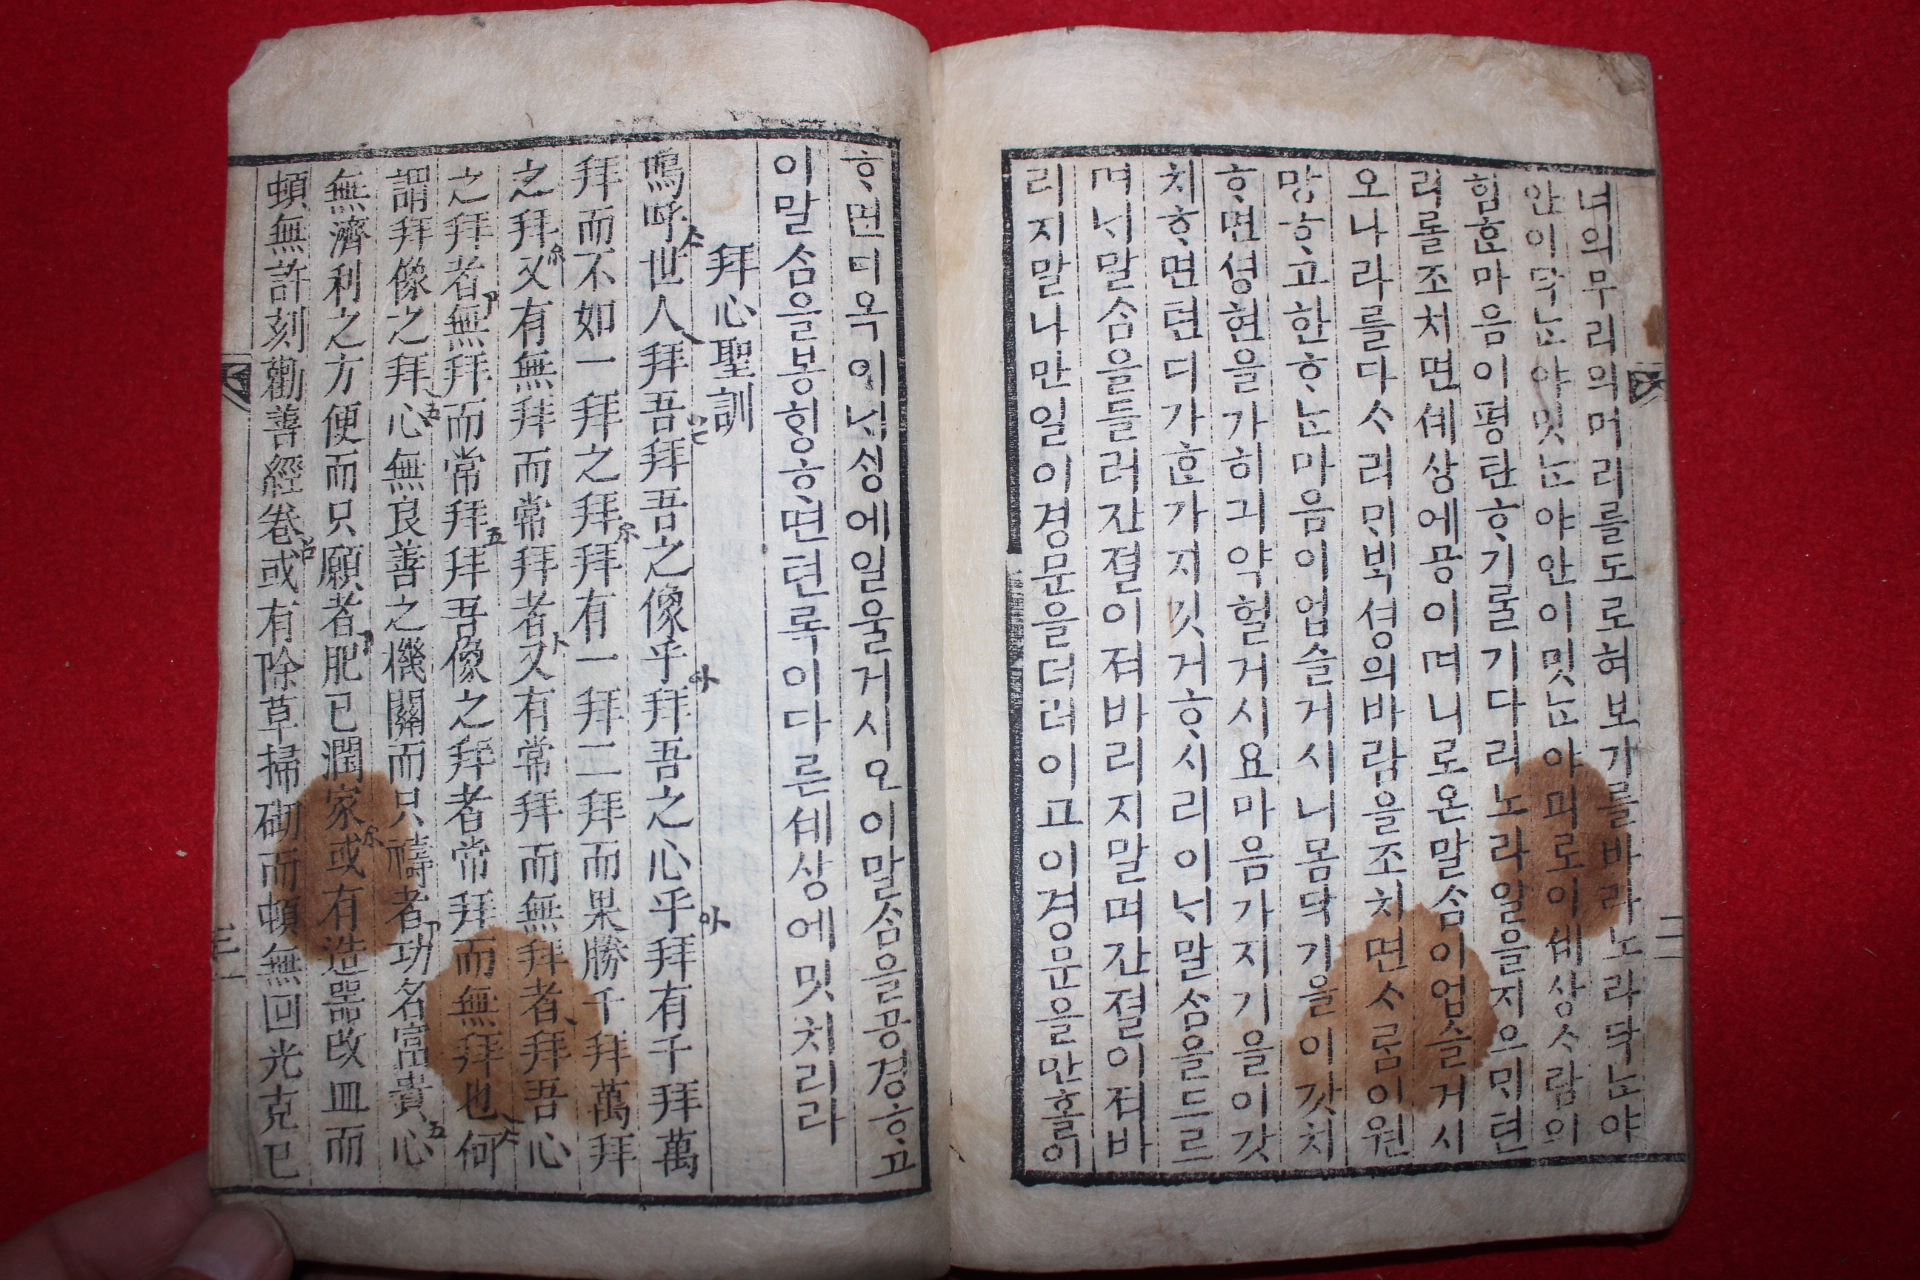 녀의무리의머리를도로혀보기를바라노라닥ᄂᆞ야
안이닥ᄂᆞ야밋ᄂᆞ야안이밋ᄂᆞ야미로이셰상ᄉᆞ람의
힘ᄒᆞᆫ마음이평란ᄒᆞ기룰기다리노라일을지으면
리롤조처면셰상에공이며니로온말ᄉᆞᆷ이업슬거시
오나라를다ᄉᆞ리며ᄇᆡᆨ셩의바람을조치면ᄉᆞ룸이원
망ᄒᆞ고한ᄒᆞᄂᆞᆫ마음이업슬거시니몸닥기을이갓치
ᄒᆞ면셩현을가히긔약헐거시요마음가지기을이갓
치ᄒᆞ면텬디가ᄒᆞᆫ가지깃거ᄒᆞ시리이ᄂᆡ말ᄉᆞᆷ을드르
며ᄂᆡ말ᄉᆞᆷ을들러잔졀이져바리지말며간졀이져바
리지말나만일이경문을더러이고이경문을만홀이
ᄒᆞ면디옥이ᄂᆡ싱에일울거시오이말ᄉᆞᆷ을공경ᄒᆞ고
이말ᄉᆞᆷ을봉ᄒᆡᆼᄒᆞ면텬록이다른셰상에밋치리라
拜心聖訓
嗚呼世人拜吾拜吾之像乎拜吾之心乎拜有千拜萬
拜而不如一拜之拜拜有一拜二拜而果勝千拜萬拜
之拜又有無拜而常拜者又有常拜而無拜者拜吾心
之拜者無拜而常拜拜吾像之拜者常拜而無拜也何
謂拜像之拜心無良善之機關而只禱者功名富貴心
無濟利之方便而只願者肥己潤家或有造器改皿而
頓無許刻勸善經卷或有除草掃砌而頓無回光克己